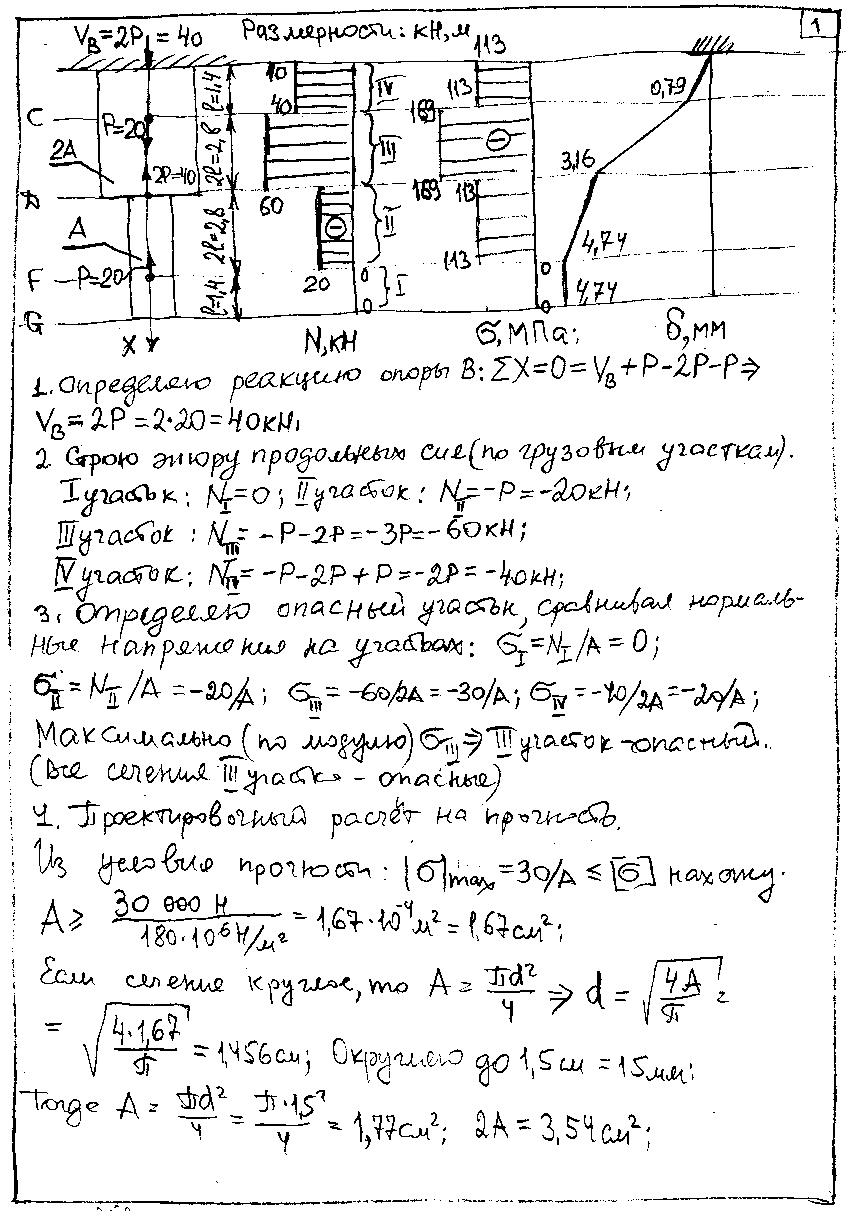 V_B=2P=40 Размерности: кН, м 1
113
40 IV 113 0,79
C 40 169
P=20 P=1,4
2A 2P=40 2P=2,8 III ⊖ 3,16
D 60 169 113
A 2P=2,8 ⊖ II 4,74
F P=20 20 0 113 0 4,74
G P=1,4 0 I 0
X N, кН σ, МПа; δ, мм
1. Определяю реакцию опоры В: ΣX=0=V_B+P-2P-P⇒
V_B=2P=2·20=40кН.
2. Строю эпюру продольных сил (по грузовым участкам).
I участок: N_I=0; II участок: N_II=-P=-20кН;
III участок: N_III=-P-2P=-3P=-60кН;
IV участок: N_IV=-P-2P+P=-2P=-40кН;
3. Определяю опасный участок, сравнивая нормаль-
ные напряжения на участках: σ_I=N_I/A=0;
σ_II=N_II/A=-20/A; σ_III=-60/2A=-30/A; σ_IV=-40/2A=-20/A;
Максимально (по модулю) σ_III⇒III участок-опасный.
(все сечения III участка - опасные)
4. Проектировочный расчёт на прочность.
Из условия прочности: |σ|max=30/A≤[σ] нахожу.
A≥ 30 000 Н / 180·10⁶Н/м² = 1,67·10⁻⁴м²=1,67см²;
Если сечение круглое, то A = πd²/4 ⇒ d = √(4A/π) =
= √(4·1,67/π) = 1,456см; Округляю до 1,5см=15мм;
Тогда A = πd²/4 = π·1,5²/4 = 1,77см²; 2A=3,54см²;